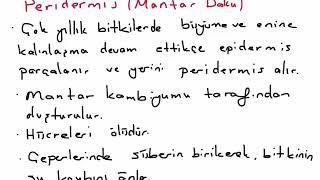 Peridermis (Mantar Doku)
· Çok yıllık bitkilerde büyüme ve enine
kalınlaşma devam ettikçe epidermis
parçalanır ve yerini peridermis alır.
· Mantar kambiyumu tarafından
oluşturulur.
· Hücreleri ölüdür.
· Çeperlerinde süberin birikerek, bitkinin
su kaybını önler.